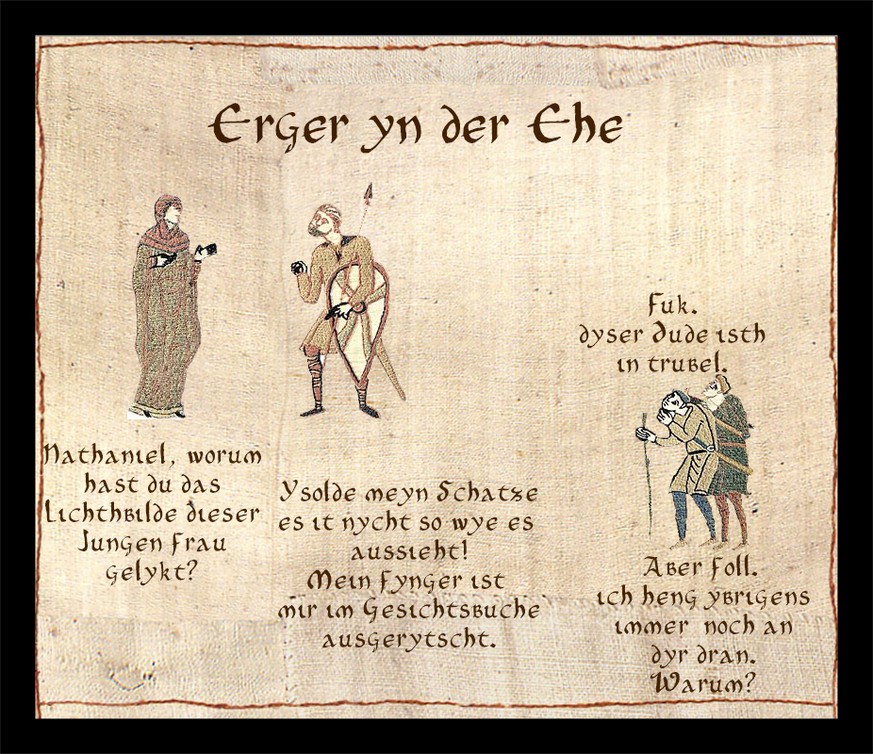 Erger yn der Ehe
Nathaniel, worum
hast du das
Lichthbilde dieser
Jungen Frau
gelykt?
Ysolde meyn Schatze
es it nycht so wye es
aussieht!
Mein Fynger ist
mir im Gesichtsbuche
ausgerytscht.
Fuk.
dyser Dude isth
in trubel.
Aber Foll.
ich heng ybrigens
immer noch an
dyr dran.
Warum?